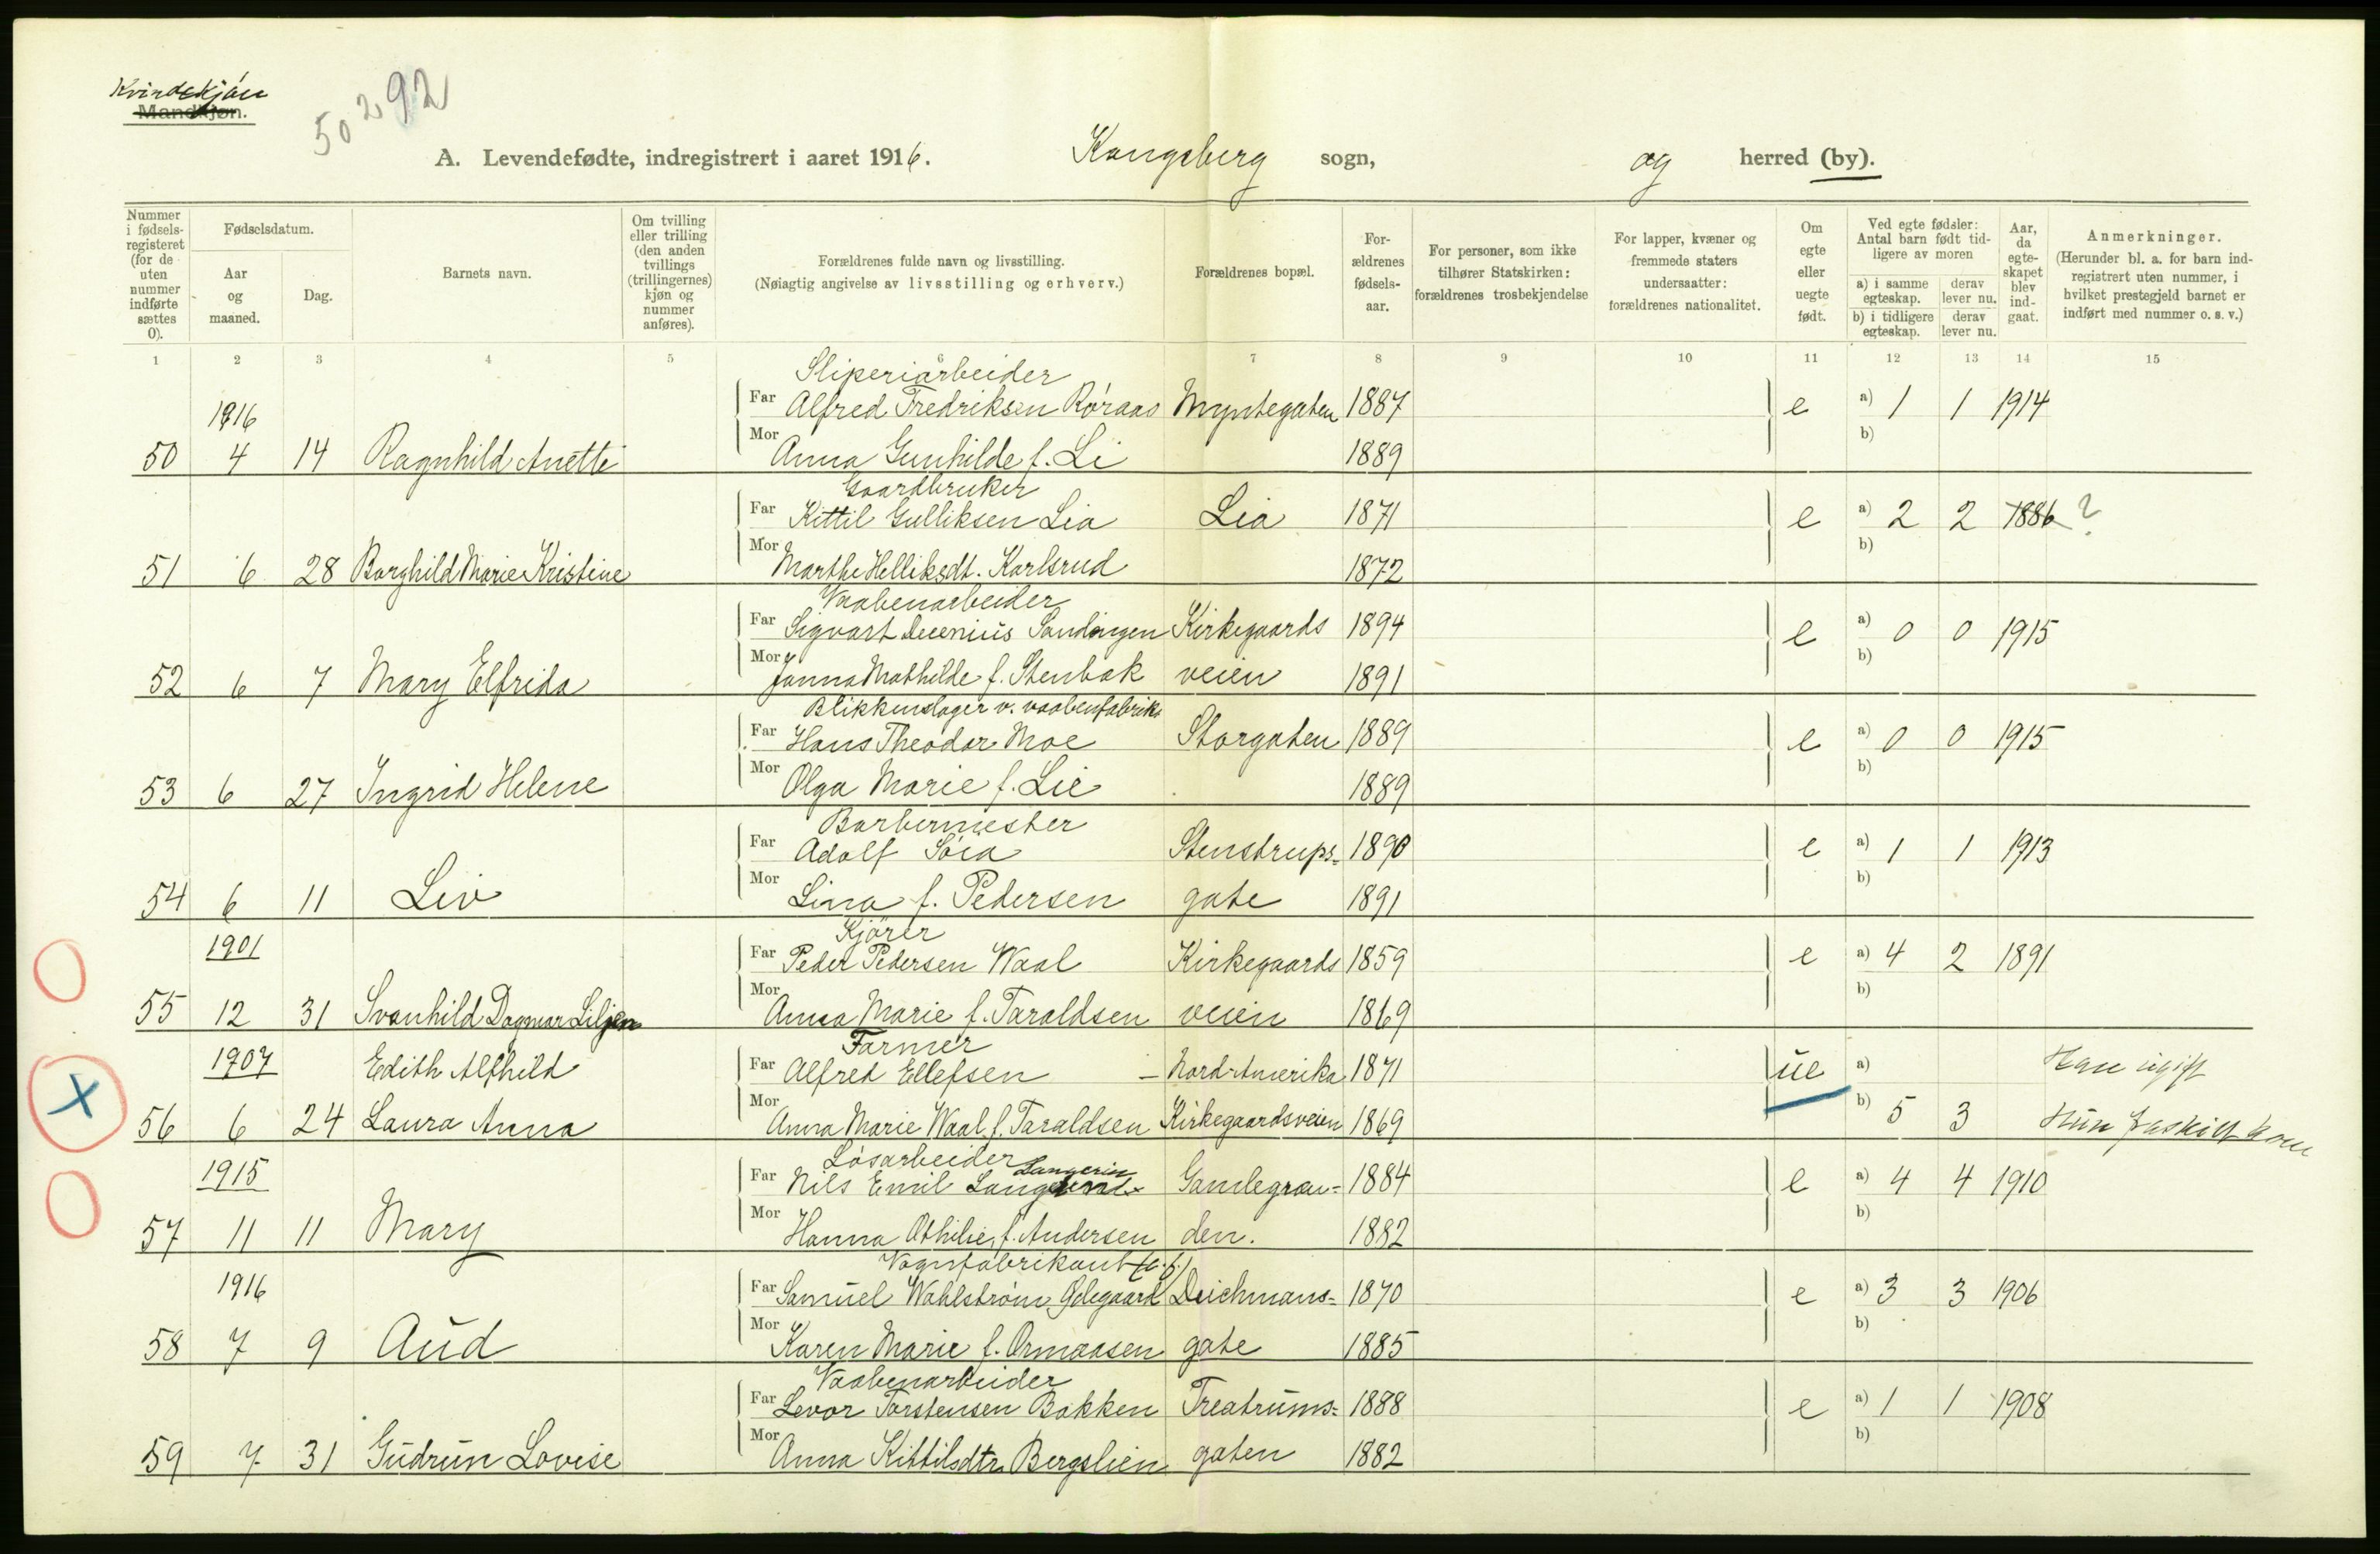 Kvindekjøn
Mandkjøn.
50292
A. Levendefødte, indregistrert i aaret 1916. Kongsberg sogn, og herred (by).
Nummer i fødselsregisteret (for de uten nummer indførte sættes 0). Fødselsdatum. Aar og maaned. Dag. Barnets navn. Om tvilling eller trilling (den anden tvillings (trillingernes) kjøn og nummer anføres). Forældrenes fulde navn og livsstilling. (Nøiagtig angivelse av livsstilling og erhverv.) Forældrenes bopæl. Forældrenes fødselsaar. For personer, som ikke tilhører Statskirken: forældrenes trosbekjendelse For lapper, kvæner og fremmede staters undersaatter: forældrenes nationalitet. Om egte eller uegte født. Ved egte fødsler: Antal barn født tidligere av moren a) i samme egteskap. b) i tidligere egteskap. derav lever nu. derav lever nu. Aar, da egteskapet blev indgaat. Anmerkninger. (Herunder bl. a. for barn indregistrert uten nummer, i hvilket prestegjeld barnet er indført med nummer o. s. v.)
1 2 3 4 5 6 7 8 9 10 11 12 13 14 15
Sliperiarbeider
1916 Far Alfred Fredriksen Røraas Myntegaten 1887 e a) 1 1 1914
b)
50 4 14 Ragnhild Anette Mor Anna Gunhilde f. Li 1889
Gaardbruker
Far Kittil Gulliksen Lia Lia 1871 e a) 2 2 1886 ?
b)
51 6 28 Borghild Marie Kristine Mor Marthe Helliksdt. Karlsrud 1872
Vaabenarbeider
Far Sigvart Decenius Sandengen Kirkegaards 1894 e a) 0 0 1915
b)
52 6 7 Mary Elfrida Mor Janna Mathilde f. Stenbak veien 1891
Blikkenslager v. vaabenfabrik.
Far Hans Theodor Moe Storgaten 1889 e a) 0 0 1915
b)
53 6 27 Ingrid Helene Mor Olga Marie f. Lie 1889
Barbermester
Far Adolf Stenstrups- 1890 e a) 1 1 1913
b)
54 6 11 Liv Mor Lina f. Pedersen gate 1891
Kjører
1901 Far Peder Pedersen Waal Kirkegaards 1859 e a) 4 2 1891
b)
55 12 31 Svanhild Dagmar Liljen Mor Anna Marie f. Taraldsen veien 1869
Farmer
1907 Edith Alfhild Far Alfred Ellefsen – Nord-Amerika 1871 ue a) Han ugift
56 6 24 Laura Anna Mor Anna Marie Waal f. Taraldsen Kirkegaardsveien 1869 b) 5 3 Hun fraskilt kone
Løsarbeider Langerin
1915 Far Nils Emil Gamlegræn- 1884 e a) 4 4 1910
b)
57 11 11 Mary Mor Hanna Othilie f. Andersen den. 1882
Vognfabrikant
1916 Far Samuel Wahlstrøm Gelegaard Deichmans- 1870 e a) 3 3 1906
b)
58 7 9 Aud Mor Karen Marie f. Ormaasen gate 1885
Vaabenarbeider
Far Levor Torstensen Bakken Treatrums- 1888 e a) 1 1 1908
b)
59 7 31 Gudrun Lovise Mor Anna Kittilsdtr. Bergslien gaten 1882